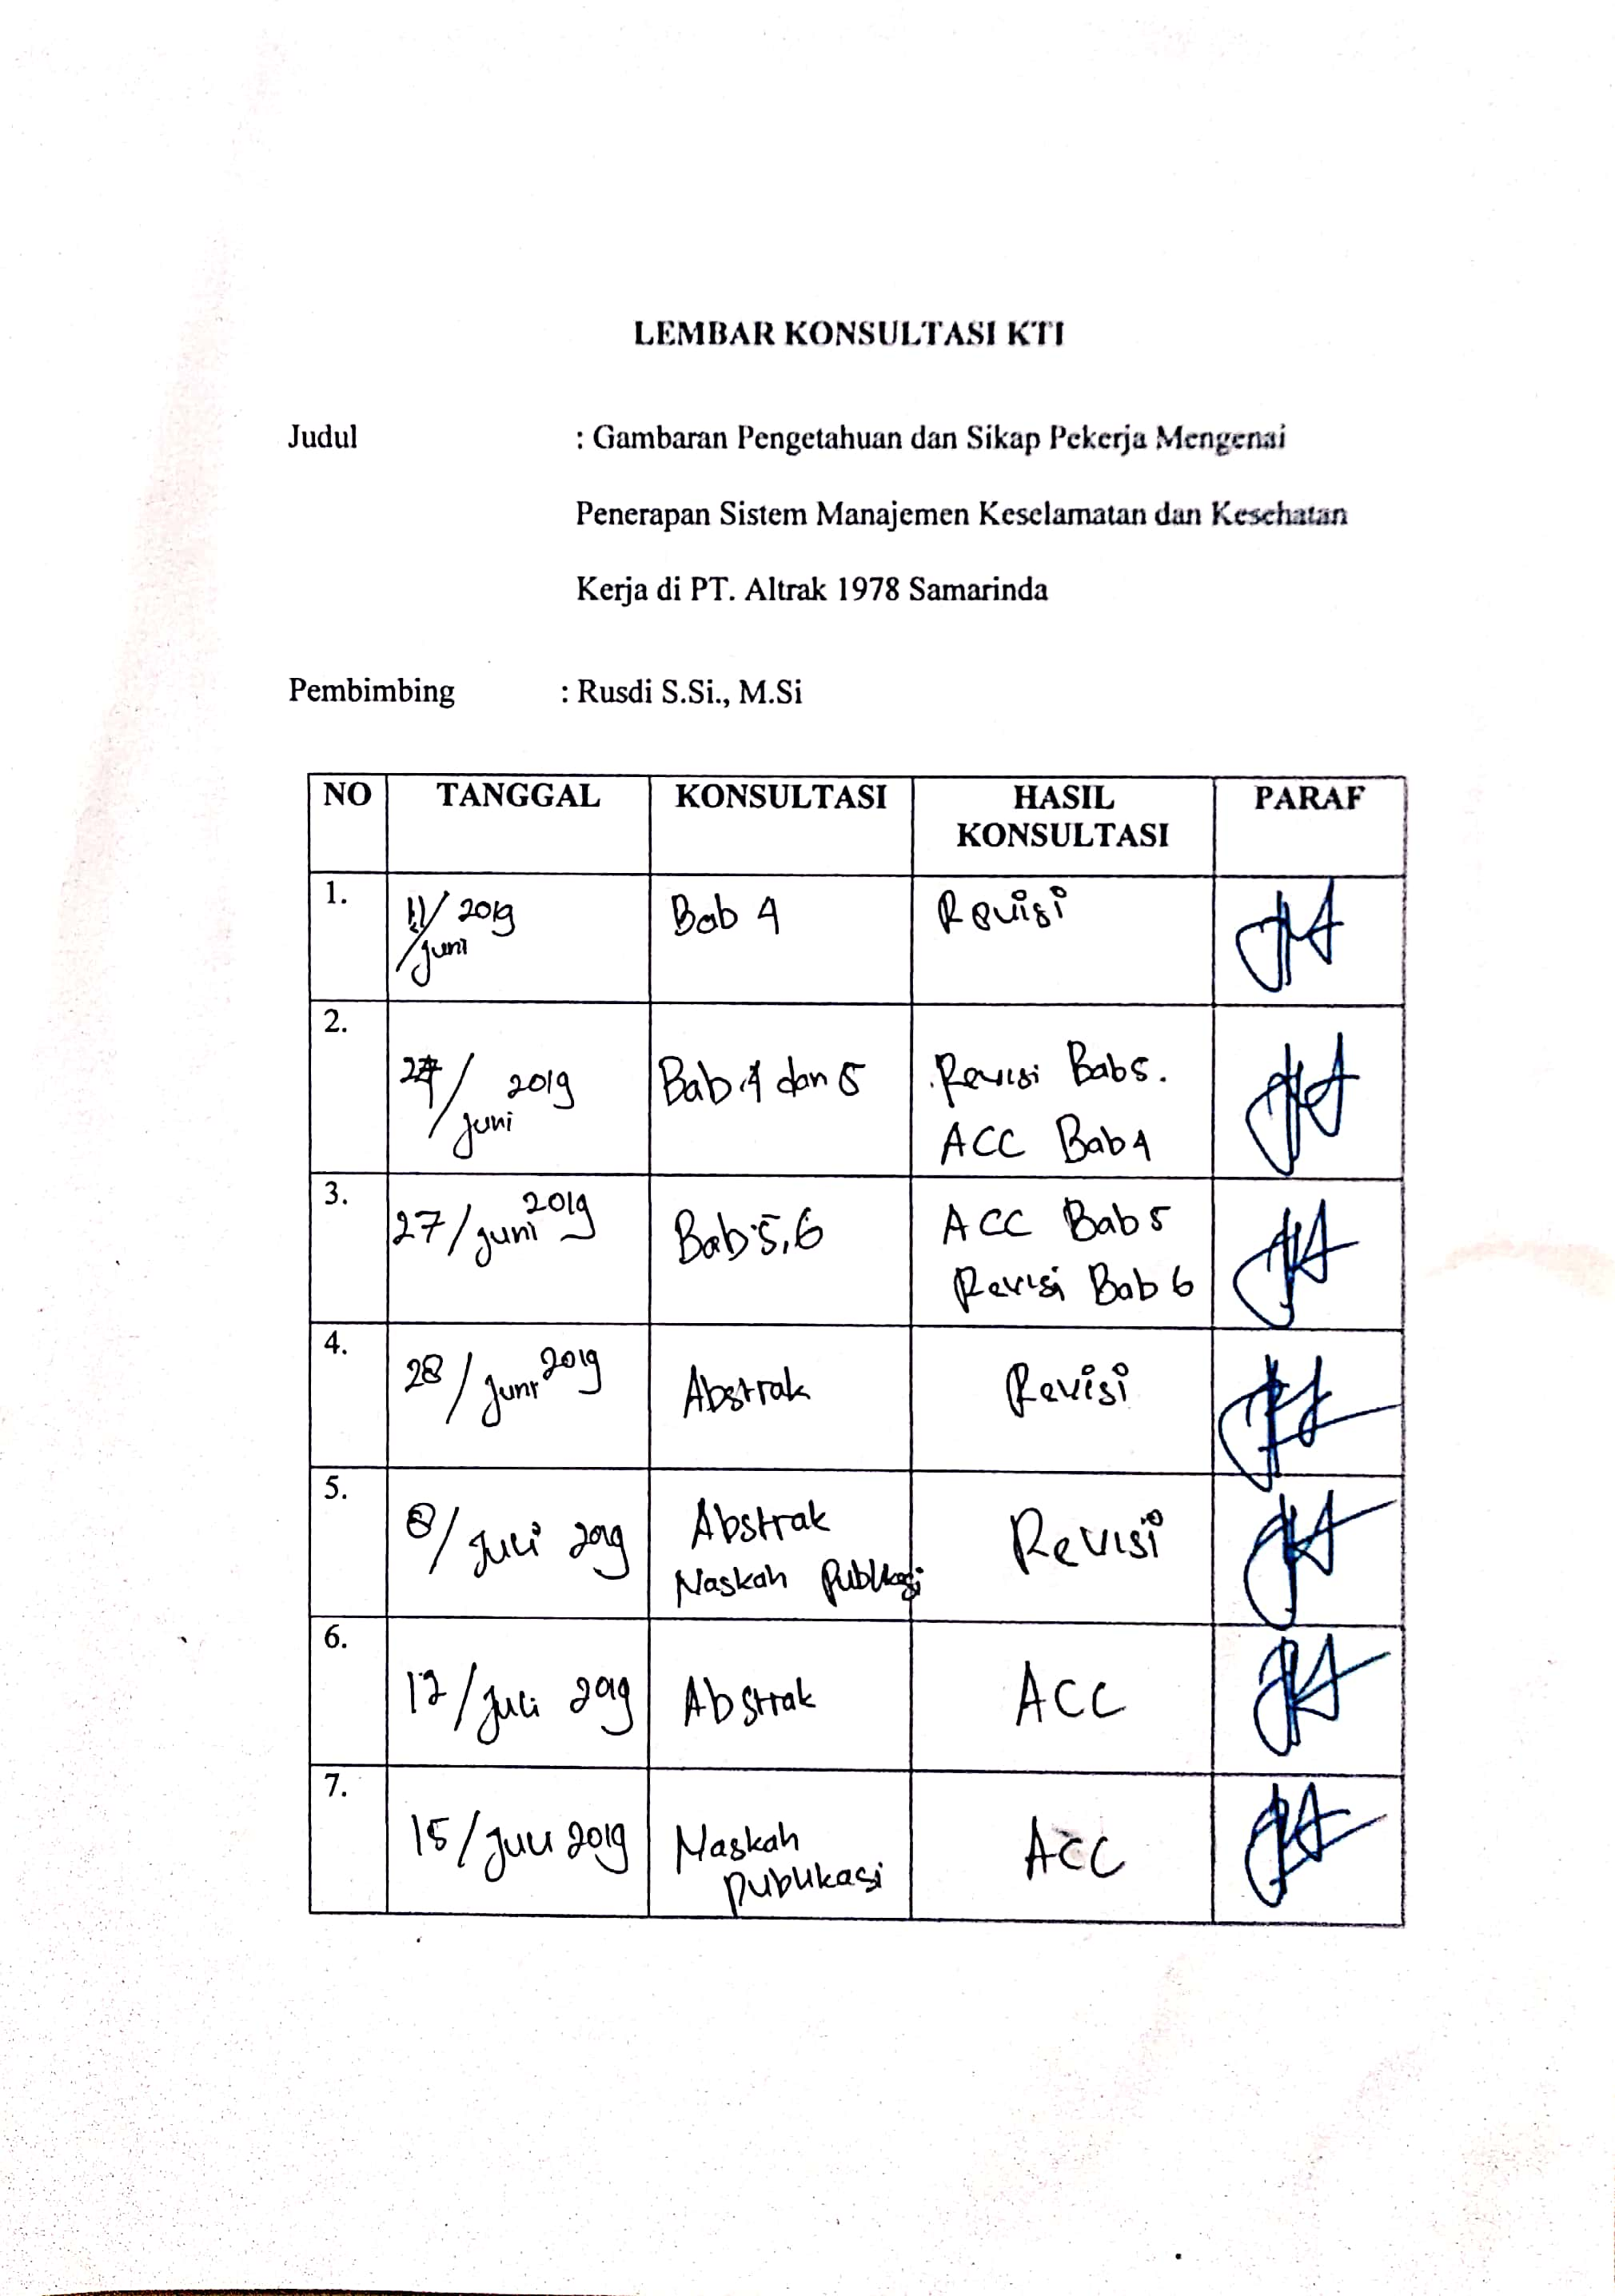 LEMBAR KONSULTASI KTI
Judul : Gambaran Pengetahuan dan Sikap Pekerja Mengenai
Penerapan Sistem Manajemen Keselamatan dan Kesehatan
Kerja di PT. Altrak 1978 Samarinda
Pembimbing : Rusdi S.Si., M.Si
NO TANGGAL KONSULTASI HASIL KONSULTASI PARAF
1. 11/juni 2019 Bab 4 Revisi
2. /juni 2019 Bab 4 dan 5 Revisi Bab 5.
ACC Bab 4
3. 27/juni 2019 Bab 5,6 ACC Bab 5
Revisi Bab 6
4. 28/juni 2019 Abstrak Revisi
5. 8/juli 2019 Abstrak Revisi
Naskah Publikasi
6. /juli 2019 Abstrak ACC
7. 15/juli 2019 Naskah ACC
publikasi